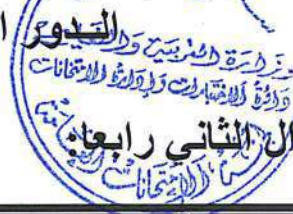 الدور ا
وزارة التربية وال
دائرة الاختبارات وإدارة الامتحانات
ال الثاني رابعا:
الامتحانات